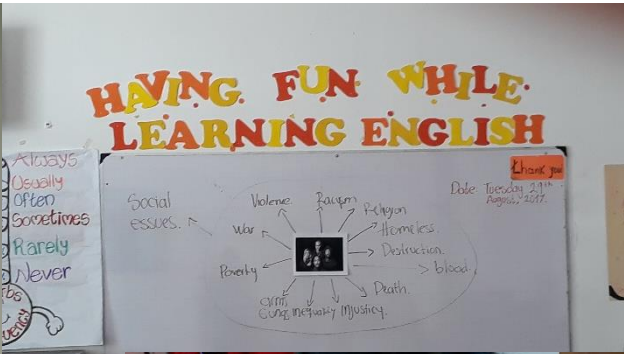 HAVING FUN WHILE
LEARNING ENGLISH
Always
Usually
Often
Sometimes
Rarely
Never
thank you
Date: Tuesday 29th
August, 2017.
Social
essues.
Violence
Racism
Religion
War
Homeless.
Destruction.
Poverty
Blood
Death.
Guns
inequality
injusticy.